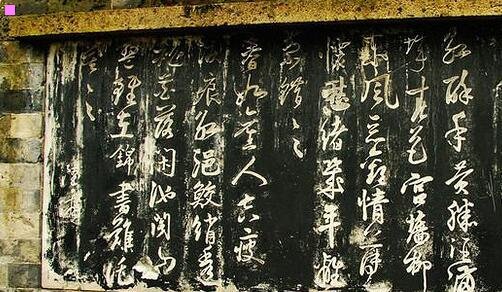 紅酥手黄縢酒滿
城春色宮牆柳
東風惡歡情薄一
懷愁緒幾年離
索錯々々
春如舊人空瘦
淚痕紅浥鮫綃透
桃花落閒池閣山
盟雖在錦書難託
莫々々